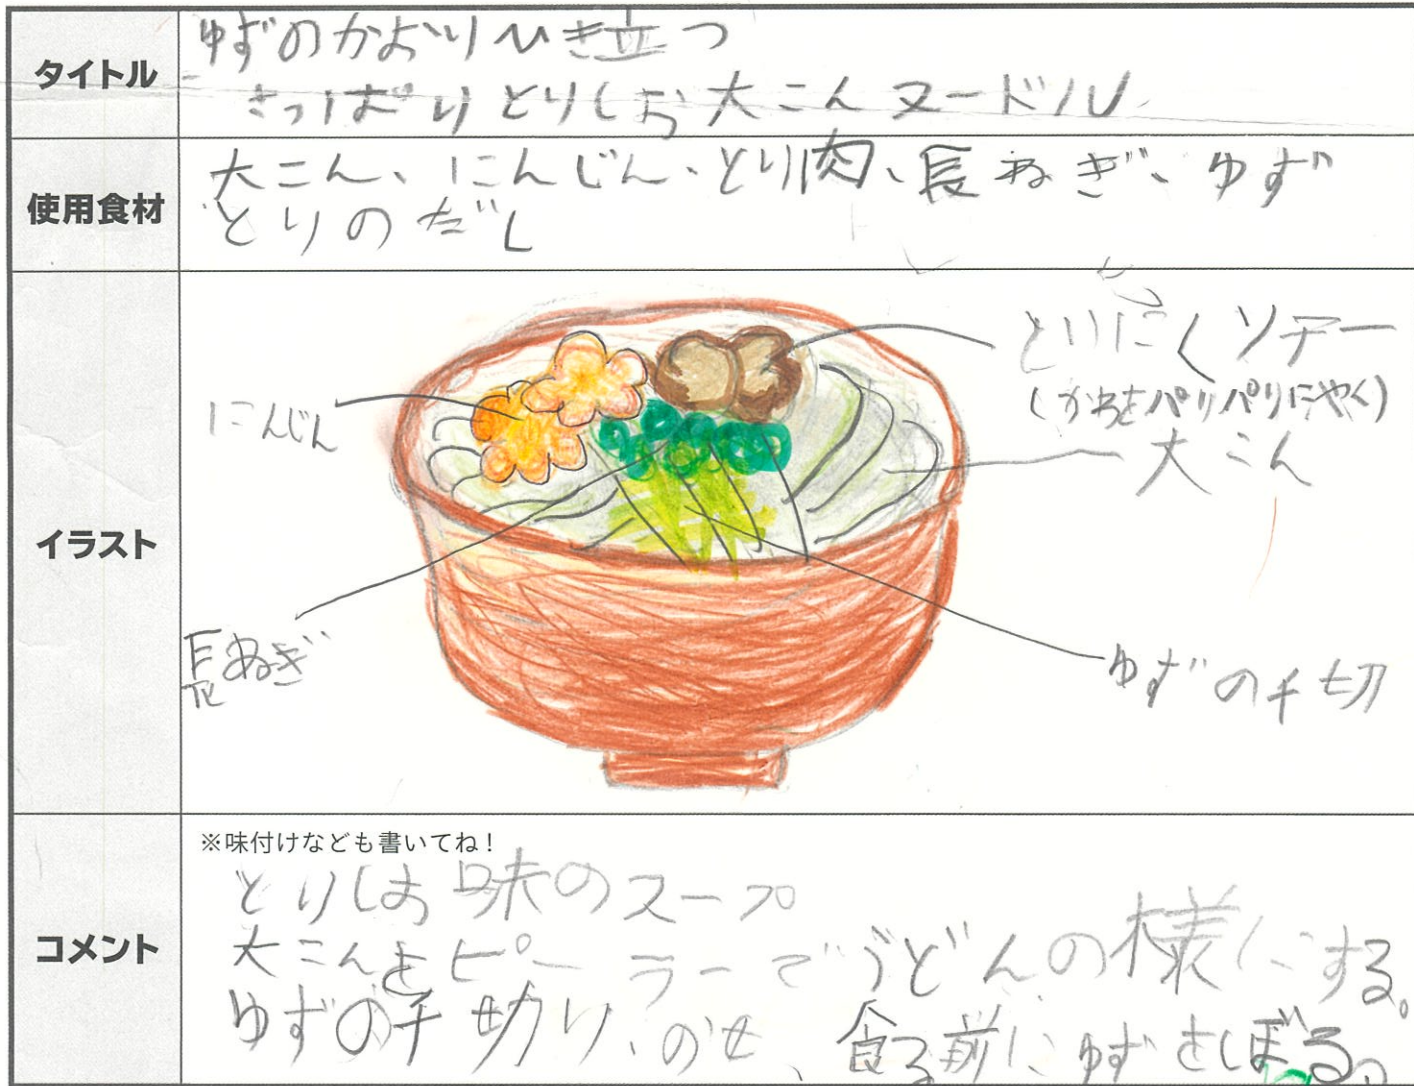 タイトル
ゆずのかおりひき立つ
さっぱりとりしお大こんヌードル
使用食材
大こん、にんじん、とり肉、長ねぎ、ゆず
とりのだし
イラスト
とりにくソテー
(かわをパリパリにやく)
にんじん
大こん
長ねぎ
ゆずの千切
コメント
※味付けなども書いてね！
とりしお味のスープ
大こんをピーラーでうどんの様にする。
ゆずの千切り、のせ、食る前にゆずをしぼる。